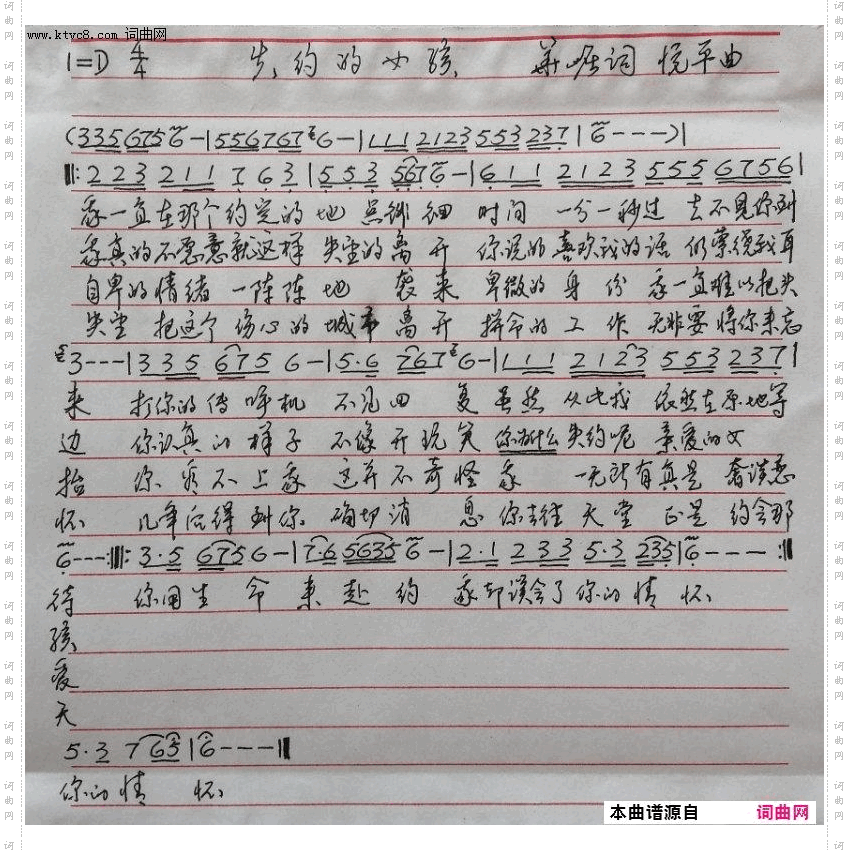 www.ktyc8.com 词曲网
1=D 4/4 失约的女孩 华崛词 悦平曲
(335 6756-|5567676-|111 2123 553 237|6---)|
||:223 211 7 6 3|553 5676-|611 2123 555 6756|
我一直在那个约定的地点徘徊 时间一分一秒过去不见你到
我真的不愿意就这样失望的离开 你说的喜欢我的话仍萦绕我耳
自卑的情绪一阵阵地袭来 卑微的身份我一直难以把头
失望把这个伤心的城市离开 拼命的工作无非要将你来忘
3---|335 675 6-|5·6 7676-|111 2123 553 237|
来 打你的传呼机不见回复 虽然从此我依然在原地等
边 你认真的样子不像开玩笑 你为什么失约呢亲爱的女
抬 你看不上我这并不奇怪 我一无所有真是奢谈恋
怀 几年后得到你确切消息 你去往天堂正是约会那
6---:||:3·5 6756-|7·6 56356-|2·1 233 5·3 235|6---:||
待 你用生命来赴约 我却误会了你的情怀
孩
爱
天
5·3 7 665|6---||
你的情怀
本曲谱源自 词曲网